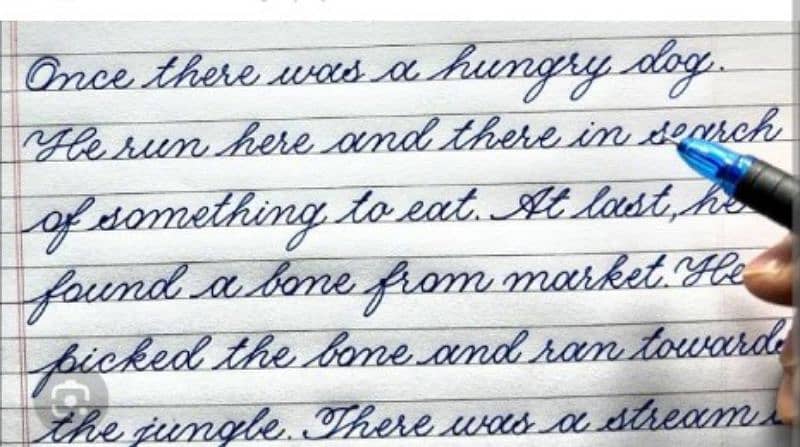 Once there was a hungry dog.
He run here and there in search
of something to eat. At last, he
found a bone from market. He
picked the bone and ran towards
the jungle. There was a stream